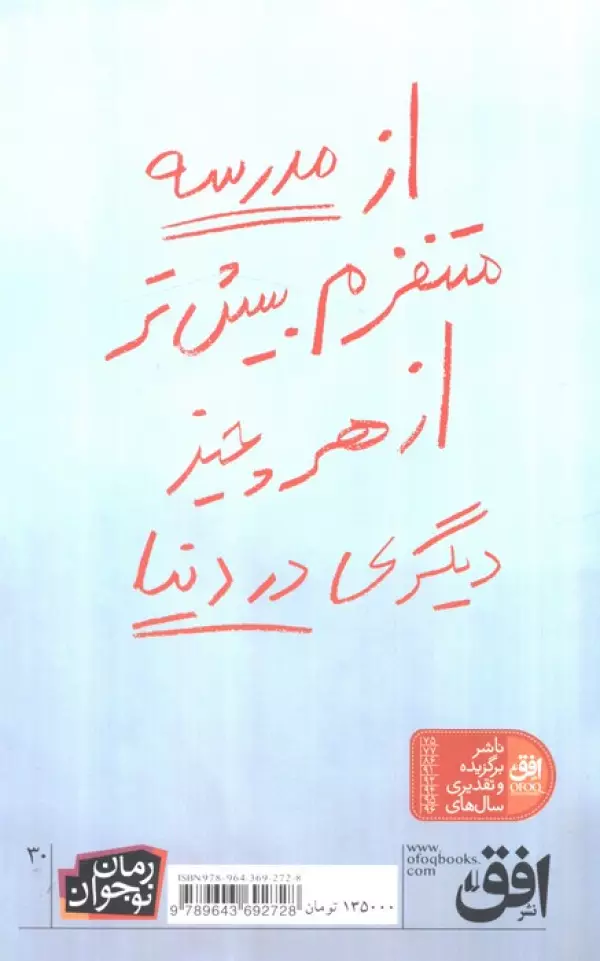 از مدرسه
متنفرم بیش‌تر
از هر چیز
دیگری در دنیا
ناشر
برگزیده
و تقدیری
سال‌های
افق
OFOQ
www.
ofoqbooks.
com
نشر افق
ISBN 978-964-369-272-8
9 789643 692728
۱۳۵۰۰۰ تومان
رمان
نوجوان
۳۰